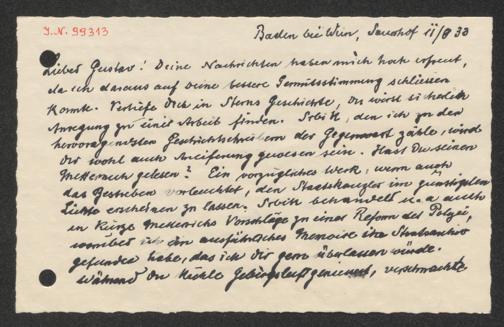 I.N. 99313
Baden bei Wien, Sauerhof 11/8 33
Lieber Gustav! Deine Nachrichten haben mich hoch erfreut,
da ich daraus auf Deine bessere Gemütsstimmung schliessen
konnte. Vertiefe Dich in Sterns Geschichte, Du wirst sicherlich
Anregung zu einer Arbeit finden. Srbik, den ich zu den
hervorragendsten Geschichtschreibern der Gegenwart zähle, wird
Dir wohl auch Aneiferung gewesen sein. Hast Du seinen
Metternich gelesen? Ein vorzügliches Werk, wenn auch
das Bestreben vorleuchtet, den Staatskanzler im günstigsten
Lichte erscheinen zu lassen. Srbik behandelt u. a. auch
in Kürze Metternichs Vorschläge zu einer Reform der Polizei,
worüber ich ein ausführliches Memoire im Staatsarchiv
gefunden habe, das ich Dir gern überlassen würde.
Während Du kühle Gebirgsluft geniesst, verschmachte